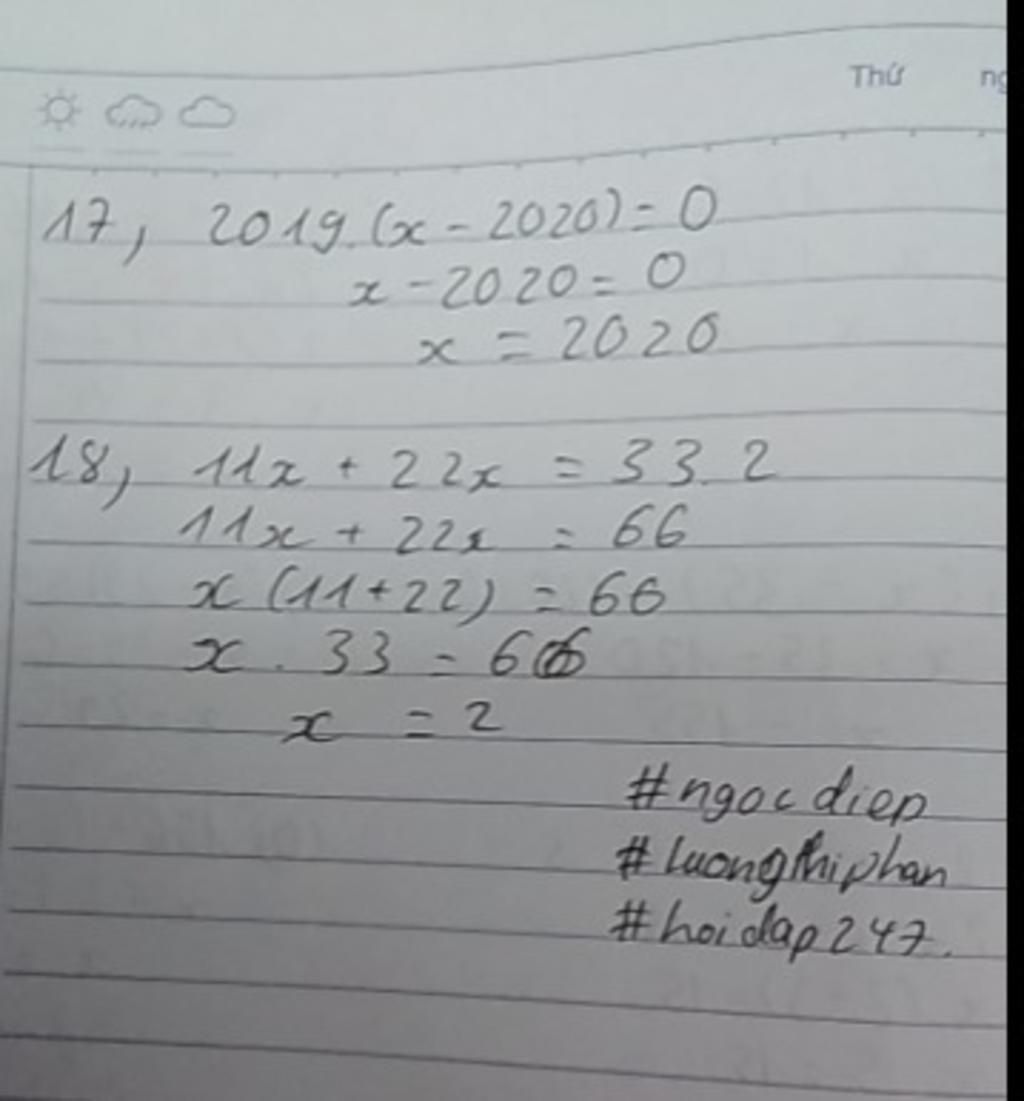 Thứ ng
17, 2019.(x - 2020) = 0
x - 2020 = 0
x = 2020
18, 11x + 22x = 33.2
11x + 22x = 66
x (11+22) = 66
x . 33 = 66
x = 2
#ngocdiep
#luongthiphan
#hoidap247.